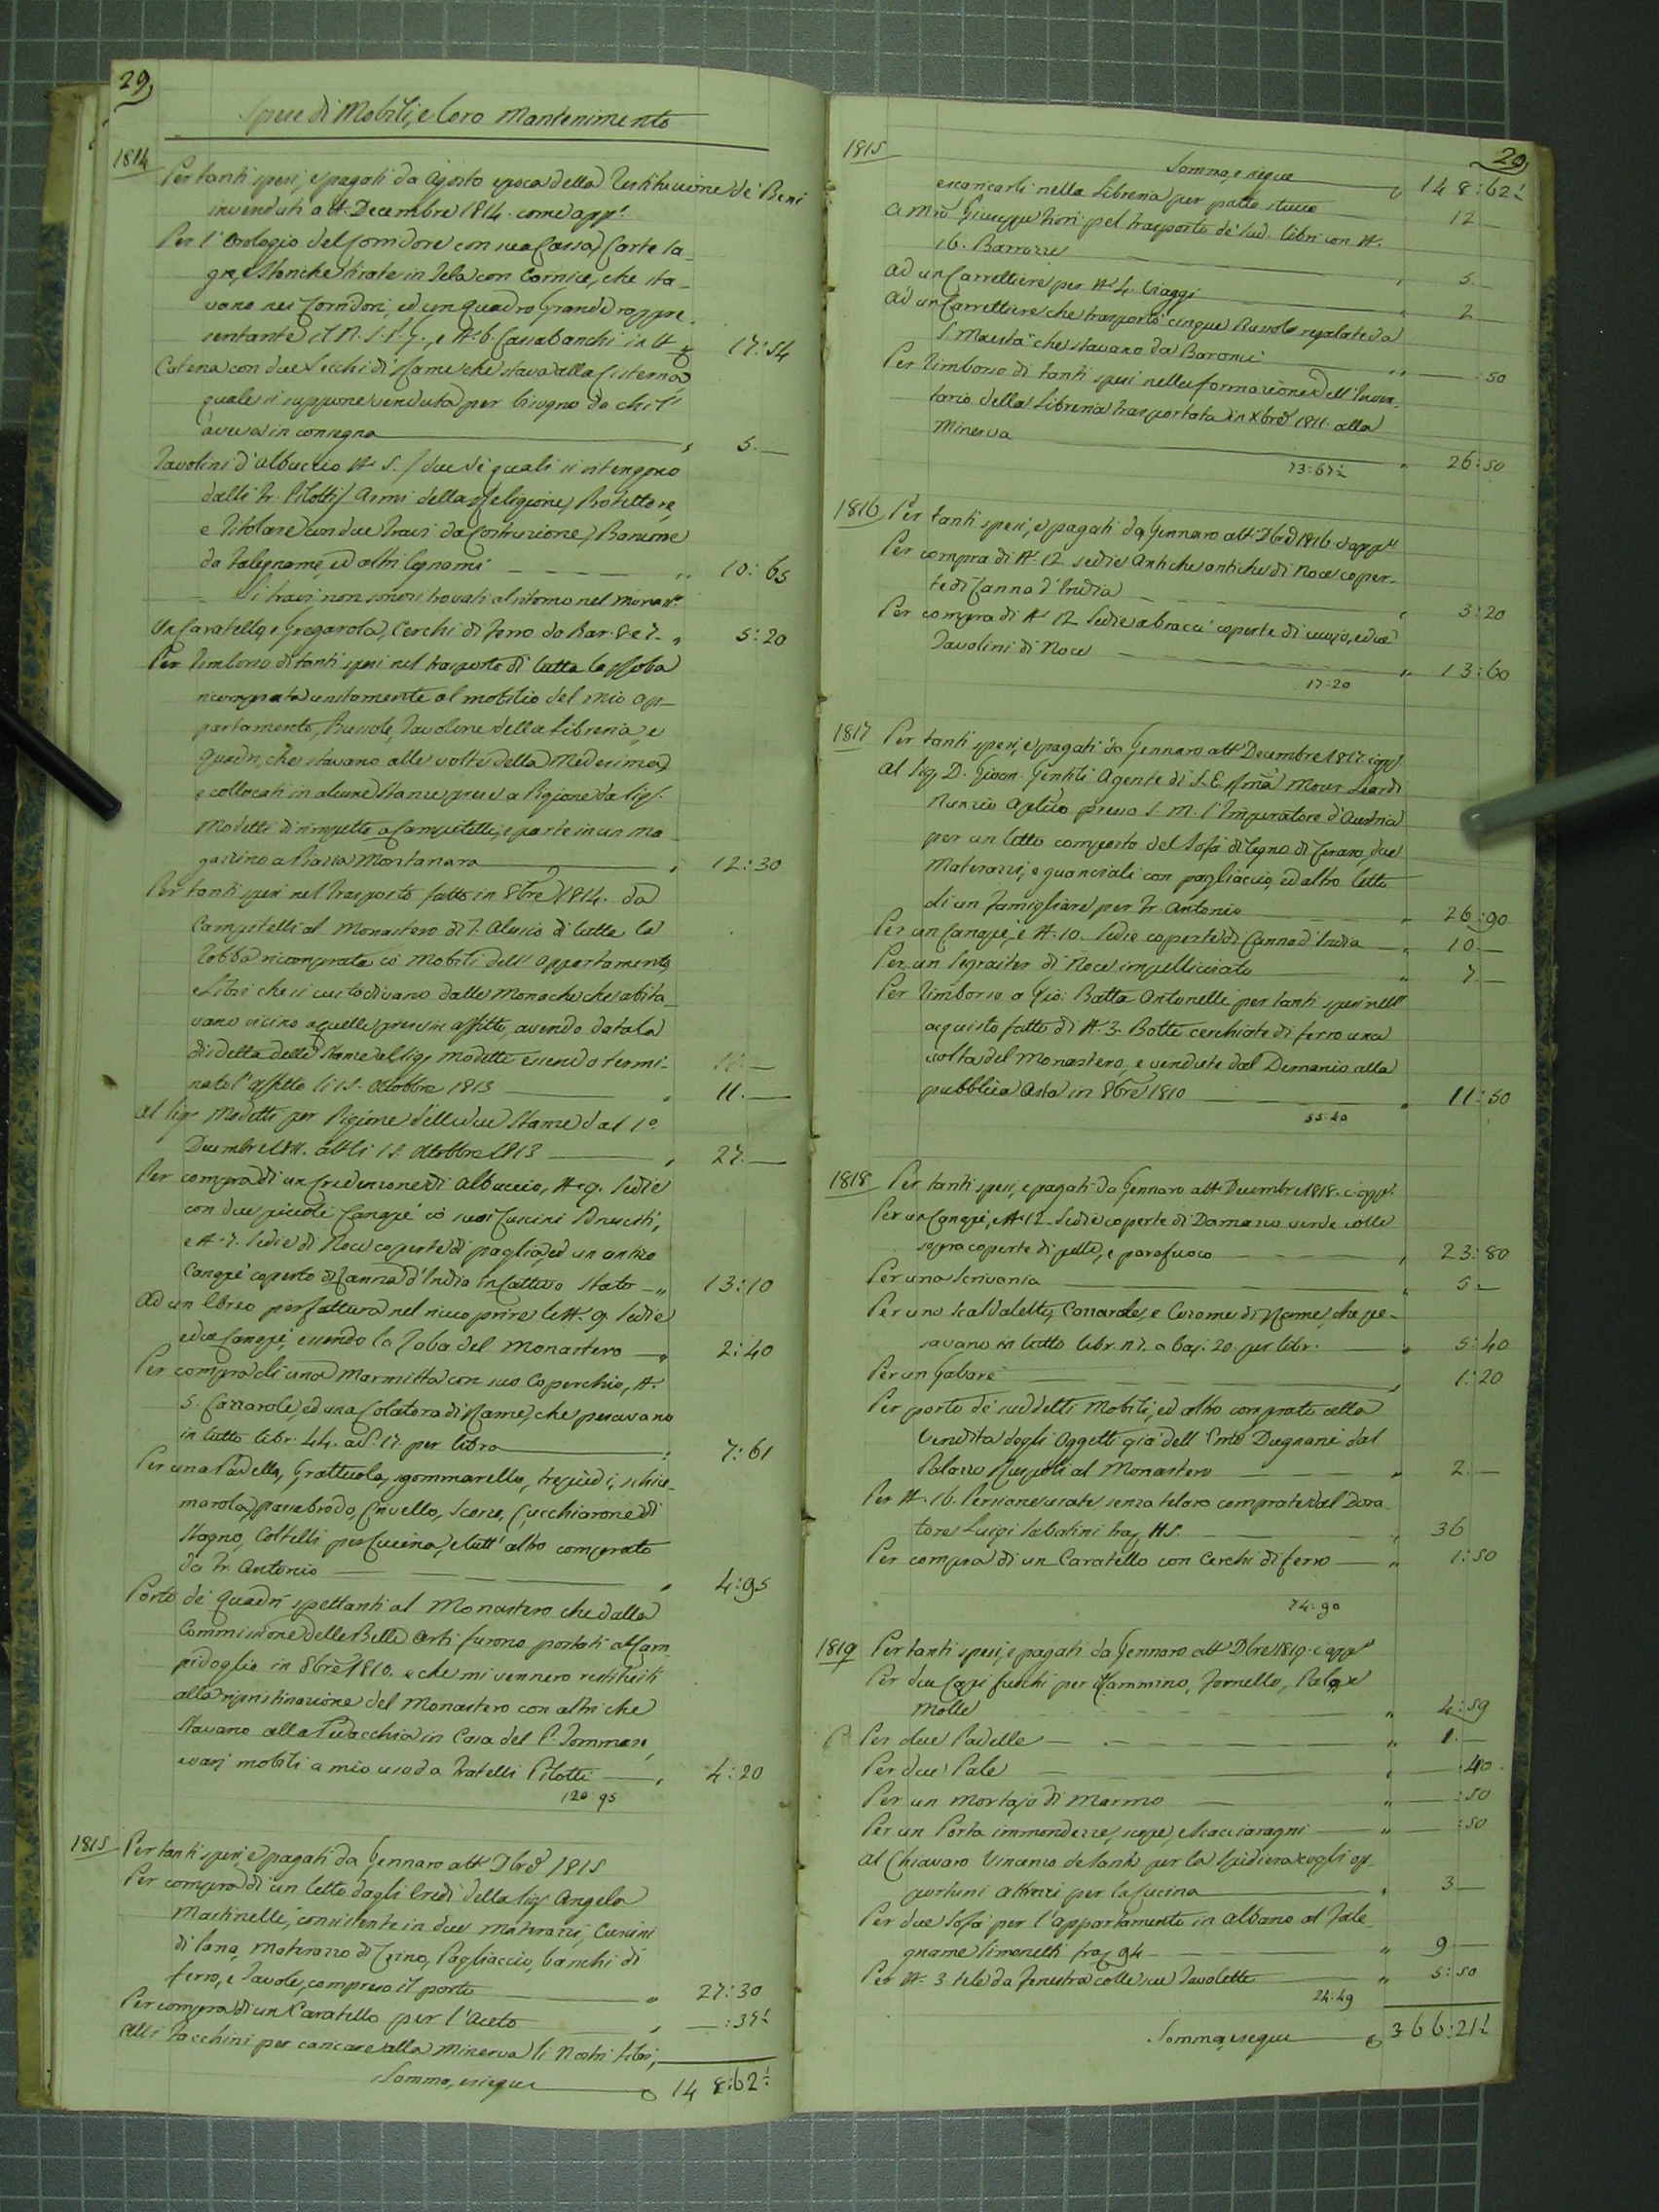 29
Spese di Mobili, e loro Mantenimento
1814
Per tanti spesi, e pagati da Agosto epoca della Restituzione de' Beni
invenduti a tt.° Decembre 1814. come app.e
Per l'Orologio del Corridore con sua Cassa, Carte
che sta-
vano nei Corridori, ed un Quadro grande rappre-
sentante il N. S. e N.° 6. Cassabanchi in tt.° 17:54
Catena con due Secchi di Rame che stava alla Cisterna,
quale si suppone venduta per bisogno da chi l'
aveva in consegna 5.—
Tavolini d'albuccio N.° 5. / due de quali si ritengono
dalli Fr. Pilotti / Armi della Religione, Protettore,
e Titolare con due Travi da Costruzione, Bancone
da falegname, ed altri legnami 10:65
Li travi non sonosi trovati al ritorno nel Monast.°
Un Caratello, e Cerchi di ferro da Bar. 8 e 7 5:20
Per rimborso di tanti spesi nel trasporto di tutta la Robba
ricomprata unitamente al mobilio del mio ap-
partamento, Bussole, Tavolone della Libreria, e
Quadri, che stavano alle volte della Medesima,
e collocati in alcune Stanze prese a Pigione da Sig.r
Modetti dirimpetto a Campitelli, e parte in un ma-
gazzino a Piazza Montanara 12:30
Per tanti spesi nel Trasporto fatto in 8bre 1814. da
Campitelli al Monastero di S. Alessio di tutta la
Robba ricomprata co' Mobili dell'Appartamento,
e Libri che si custodivano dalle Monache che abita-
vano vicino a quelle prese in affitto, avendo data la
disdetta delle Stanze al Sig.r Modetti essendo termi- 11.—
nato l'affitto li 15. Ottobre 1813 11.—
Al Sig.r Modetti per Pigione delle due Stanze dal 1.°
Decembre 1811. alli 15. Ottobre 1813 27.—
Per compra di un Credenzone di Albuccio, N.° 9. Sedie
con due piccoli Canapè co' suoi Cuscini sdruciti,
e N.° 7. Sedie di Noce coperte di paglia, ed un antico
Canapè coperto di Canna d'India in cattivo stato 13:10
Ad un Ebreo per fattura nel ricoprire le N.° 9. Sedie
e due Canapè, essendo la Roba del Monastero 2:40
Per compra di una Marmitta con suo Coperchio, N.°
5. Cazzarole, ed una Colatora di Rame, che pesavano
in tutto libr. 44. a b. 17. per libra 7:61
Per una Padella, Grattuola, sgommarello, trepiedi, schiu-
marola, passabrodo, Crivello, Scorzo, Cucchiarone di
Stagno, Coltelli per Cucina, e tutt'altro comprato
da Fr. Antonio 4:95
Porto de' Quadri spettanti al Monastero che dalla
Commissione delle Belle Arti furono portati al Cam-
pidoglio in 8bre 1810. e che mi vennero restituiti
alla ripristinazione del Monastero con altri che
stavano alla Pedacchia in Casa del P. Tommasi,
e varj mobili a mio uso da Fratelli Pilotti 4:20
120:95
1815 Per tanti spesi, e pagati da Gennaro a tt.° Xbre 1815
Per compra di un letto dagli Eredi della Sig.ra Angela
Martinelli, consistente in due Materazzi, Cuscini
di lana, Materazzo di Crino, Pagliaccio, banchi di
ferro, e Tavole, compreso il porto 27:30
Per compra di un Caratello per l'Aceto —:37½
Alli Facchini per caricare alla Minerva li Nostri Libri,
Somma, e siegue 148:62½
29
1815
Somma, e siegue 148:62½
e scaricarli nella Libreria per patto 12.—
A Mro Giuseppe Fiori pel trasporto de' sud. libri con N.°
16. Barrozze 5.—
Ad un Carrettiere per N.° 4. Viaggi 2.—
Ad un Carrettiere che trasportò cinque Bussole regalate da
S. Maestà che stavano da Baronci —:50
Per rimborso di tanti spesi nella formazione dell'Inven-
tario della Libreria trasportata in Xbre 1811. alla
Minerva 26:50
73:67½
1816 Per tanti spesi, e pagati da Gennaro a tt.° Xbre 1816. c. app.e
Per compra di N.° 12 Sedie Antiche antiche di Noce coper-
te di Canna d'India 3:20
Per compra di N.° 12 Sedie a bracci coperte di cuojo, e due
Tavolini di Noce 13:60
17:20
1817 Per tanti spesi, e pagati da Gennaro a tt.° Decembre 1817. c. app.e
Al Sig. D. Giovan. Gentili Agente di S. E. Rma Mons. Leardi
Nunzio Aplico presso S. M. l'Imperatore d'Austria
per un letto composto del Sofà di legno di Ceraso, due
Materazzi, e guanciali con pagliaccio, ed altro letto
di un Famigliare per Fr. Antonio 26:90
Per un Canapè, e N.° 10. Sedie coperte di Canna d'India 10.—
Per un Segraiter di Noce impellicciato 7.—
Per rimborso a Gio: Batta Antonelli per tanti spesi nell'
acquisto fatto di N.° 3. Botti cerchiate di ferro una
volta del Monastero, e vendute dal Demanio alla
pubblica Asta in 8bre 1810 11:50
55:40
1818 Per tanti spesi, e pagati da Gennaro a tt.° Decembre 1818. c. app.e
Per un Canapè, e N.° 12 Sedie coperte di Damasco verde colle
sopracoperte di pelle, e parafuoco 23:80
Per una Scrivania 5.—
Per uno Scaldaletto, Cazzarole, e Cocome di Rame, che pe-
savano in tutto libr. 27. a baj. 20. per libr. 5:40
Per un Gabarè 1:20
Per porto de' suddetti Mobili, ed altro comprato alla
Vendita degli Oggetti già dell'Emo Dugnani dal
Palazzo Ruspoli al Monastero 2.—
Per N.° 16. Persiane usate senza telaro comprate dal Dora-
tore Luigi Sabatini 36
Per compra di un Caratello con Cerchi di ferro 1:50
74:90
1819 Per tanti spesi, e pagati da Gennaro a tt.° Xbre 1819. c. app.e
Per due Capi fuochi per Cammino, Fornello, Pala, e
Molle 4:59
Per due Padelle 1.—
Per due Pale —:40
Per un Mortajo di Marmo —:50
Per un Porta immondezze, scope, e Scacciaragni —:50
Al Chiavaro Vincenzo de Santis per la Spidiera cogli op-
portuni attrezzi per la Cucina 3.—
Per due Sofà per l'appartamento in Albano al Fale-
gname Simonelli 9.—
Per N.° 3. tele da Fenestra colle sue Tavolette 5:50
24:49
Somma, e siegue 366:21½